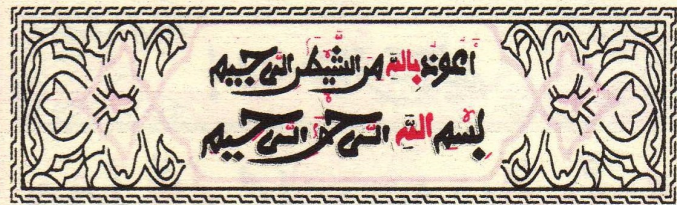 اعوذ بالله من الشيطن الرجيم
بسم الله الرحمن الرحيم